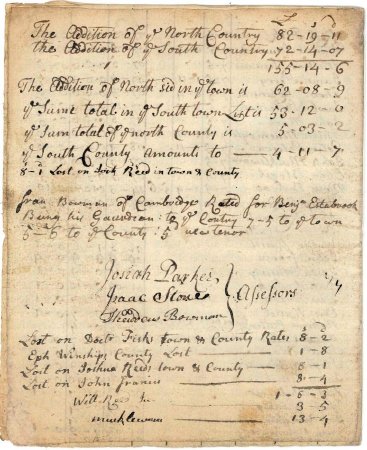 £ s d
The Addition of ye North Country 82-19-11
the Addition of ye South Country 72-14-07
155-14-6
The Addition of North sid in ye town is 62-08-9
ye Sume total in ye South town List is 53-12-0
ye Sum total of ye north County is 5-03-2
ye South County Amounts to 4-11-7
8-1 Lost on Reed in town & County
fran Bowman of Cambridge Rated for Benja Estabrook
Being his Gaurdean to ye Contry 7-5 to ye town
5-6 to ye County :5d new tenor
Josiah Parker
Isaac Stone
Thaddeus Bowman
Asessors
s d
Lost on Doctr Fisk town & County Rates 8-2
Eph Winships County Lost 1-8
Lost on Joshua Reeds town & County 8-1
Lost on John francis 8-4
1-6-3
Will Reed 3-5
13-4